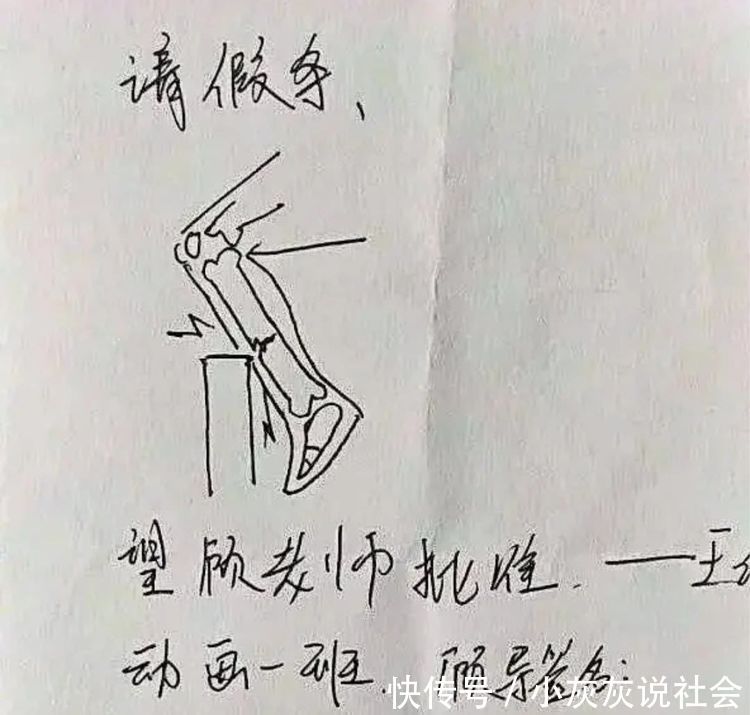 请假条、
望顾老师批准.——王
动画一班. 顾导签名:
快传号/小灰灰说社会